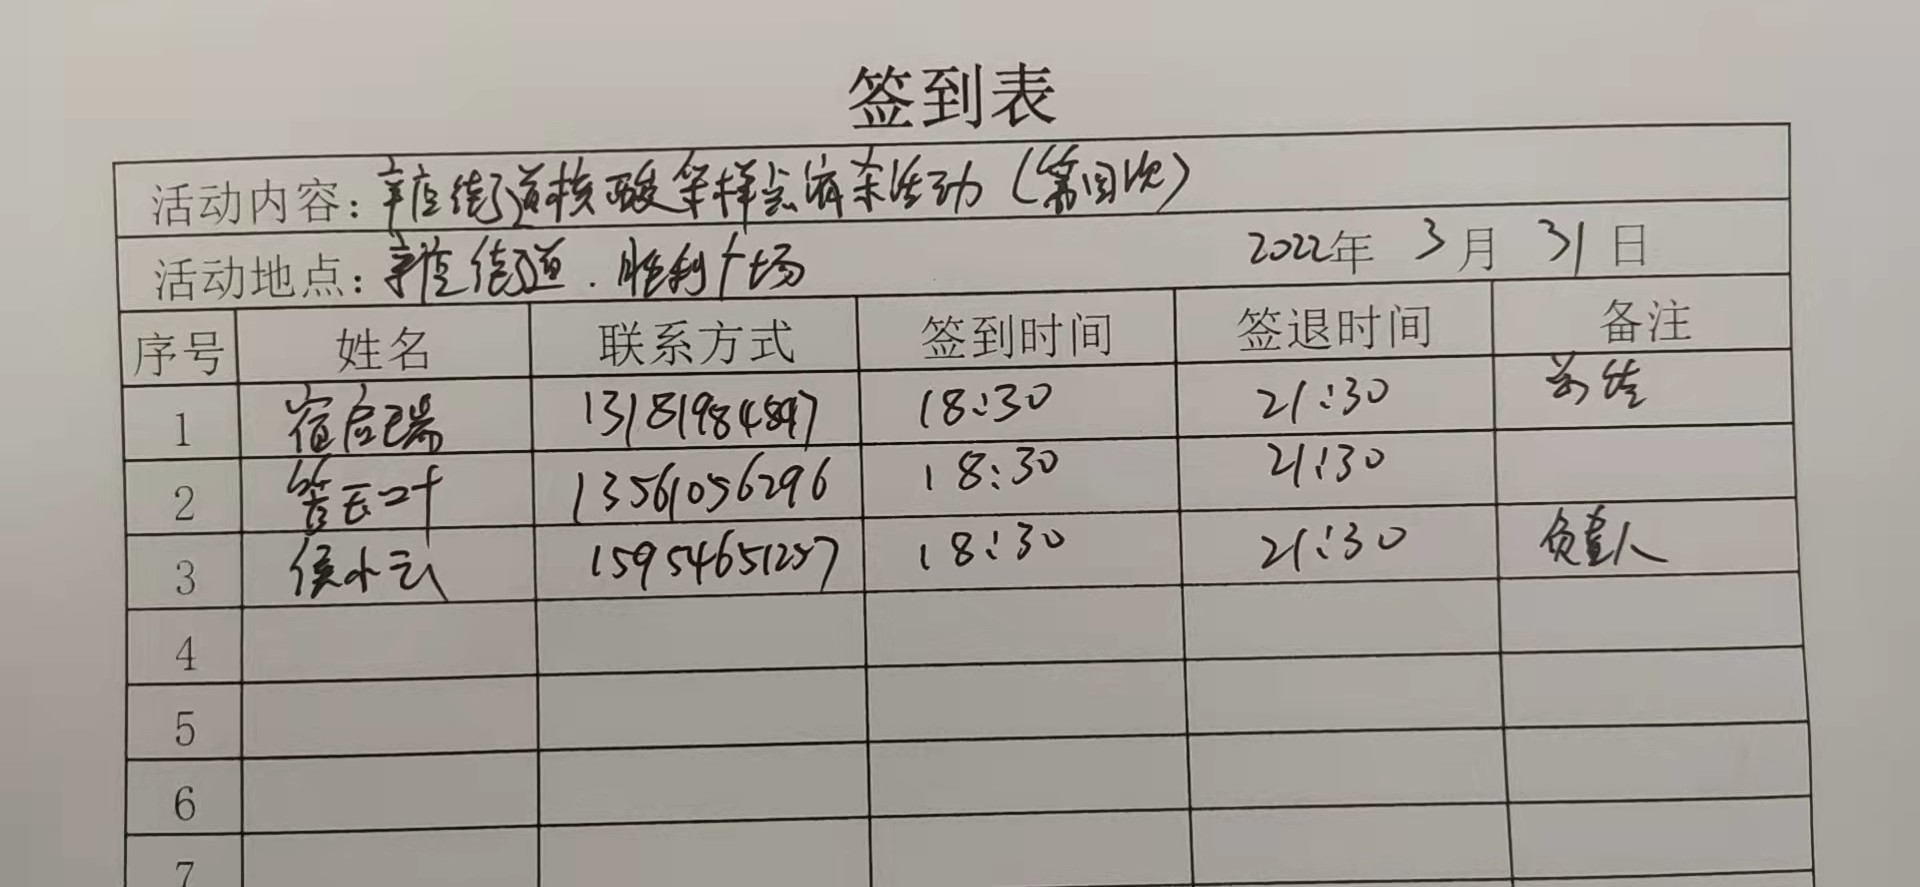 签到表
活动内容：辛店街道核酸采样点消杀活动（第四次）
活动地点：辛店街道.胜利广场 2022年 3月 31日
序号 姓名 联系方式 签到时间 签退时间 备注
1 宿启瑞 13181984897 18:30 21:30
2 13561056296 18:30 21:30
3 侯小云 15954651257 18:30 21:30 负责人
4
5
6
7